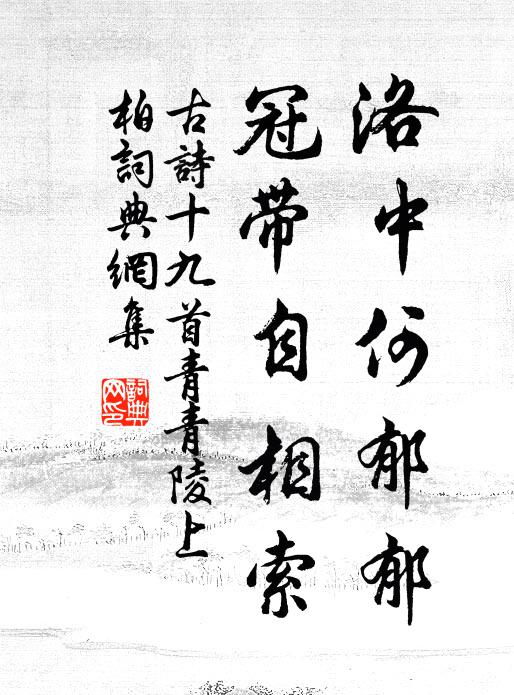 洛中何郁郁
冠带自相索
古詩十九首青青陵上
柏詞典網集
詞典
网印